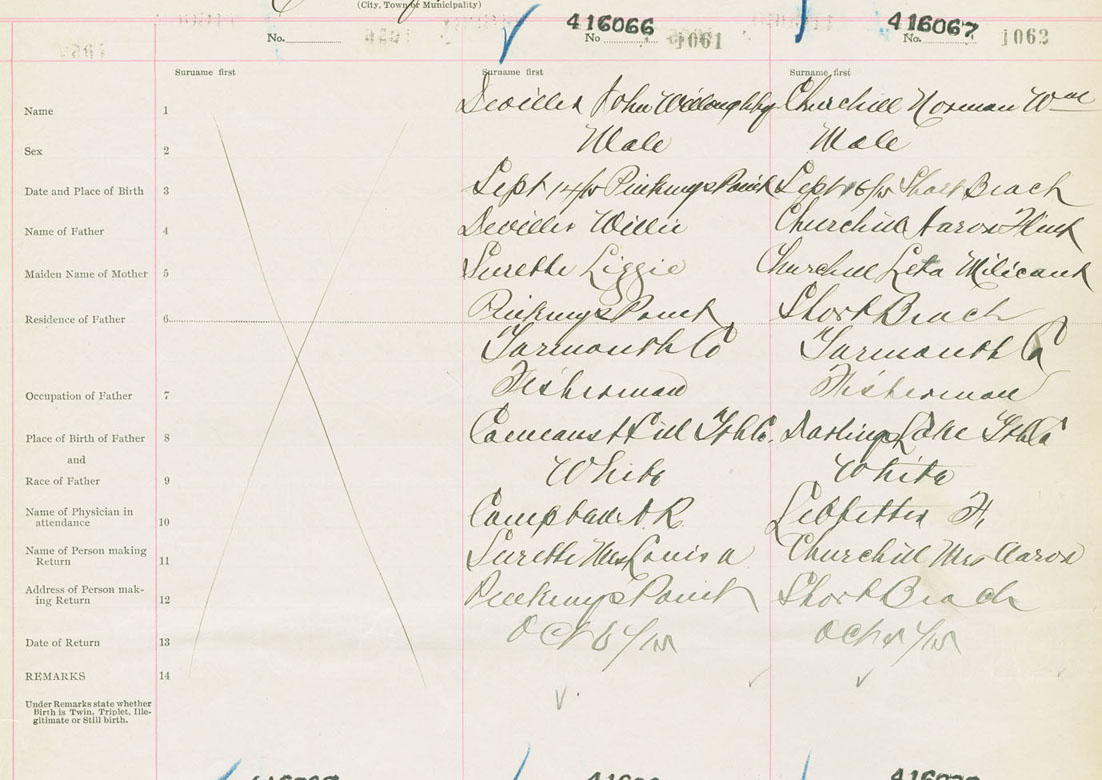 (City, Town or Municipality)
No. 416066 No 1061 416067 No. 1062
Surname first Surname first Surname first
Name 1 Deviller John Willoughby Churchill Norman Wm
Sex 2 Male Male
Date and Place of Birth 3 Sept 14/15 Pinkneys Point Sept 16/15 Short Beach
Name of Father 4 Deviller Willie Churchill Aaron Flint
Maiden Name of Mother 5 Surette Lizzie Churchill Leta Milicant
Residence of Father 6 Pinkneys Point Short Beach
Yarmouth Co Yarmouth Co
Occupation of Father 7 Fisherman Fisherman
Place of Birth of Father 8 Comeaus Hill Yth Co. Darlings Lake Yth Co
and
Race of Father 9 White White
Name of Physician in
attendance 10 Campbell A R Lebbetter F.
Name of Person making
Return 11 Surette Mrs Louisa Churchill Mrs Aaron
Address of Person mak-
ing Return 12 Pinkneys Point Short Beach
Date of Return 13 Oct 6/15 Oct 4/15
REMARKS 14
Under Remarks state whether
Birth is Twin, Triplet, Ille-
gitimate or Still birth.